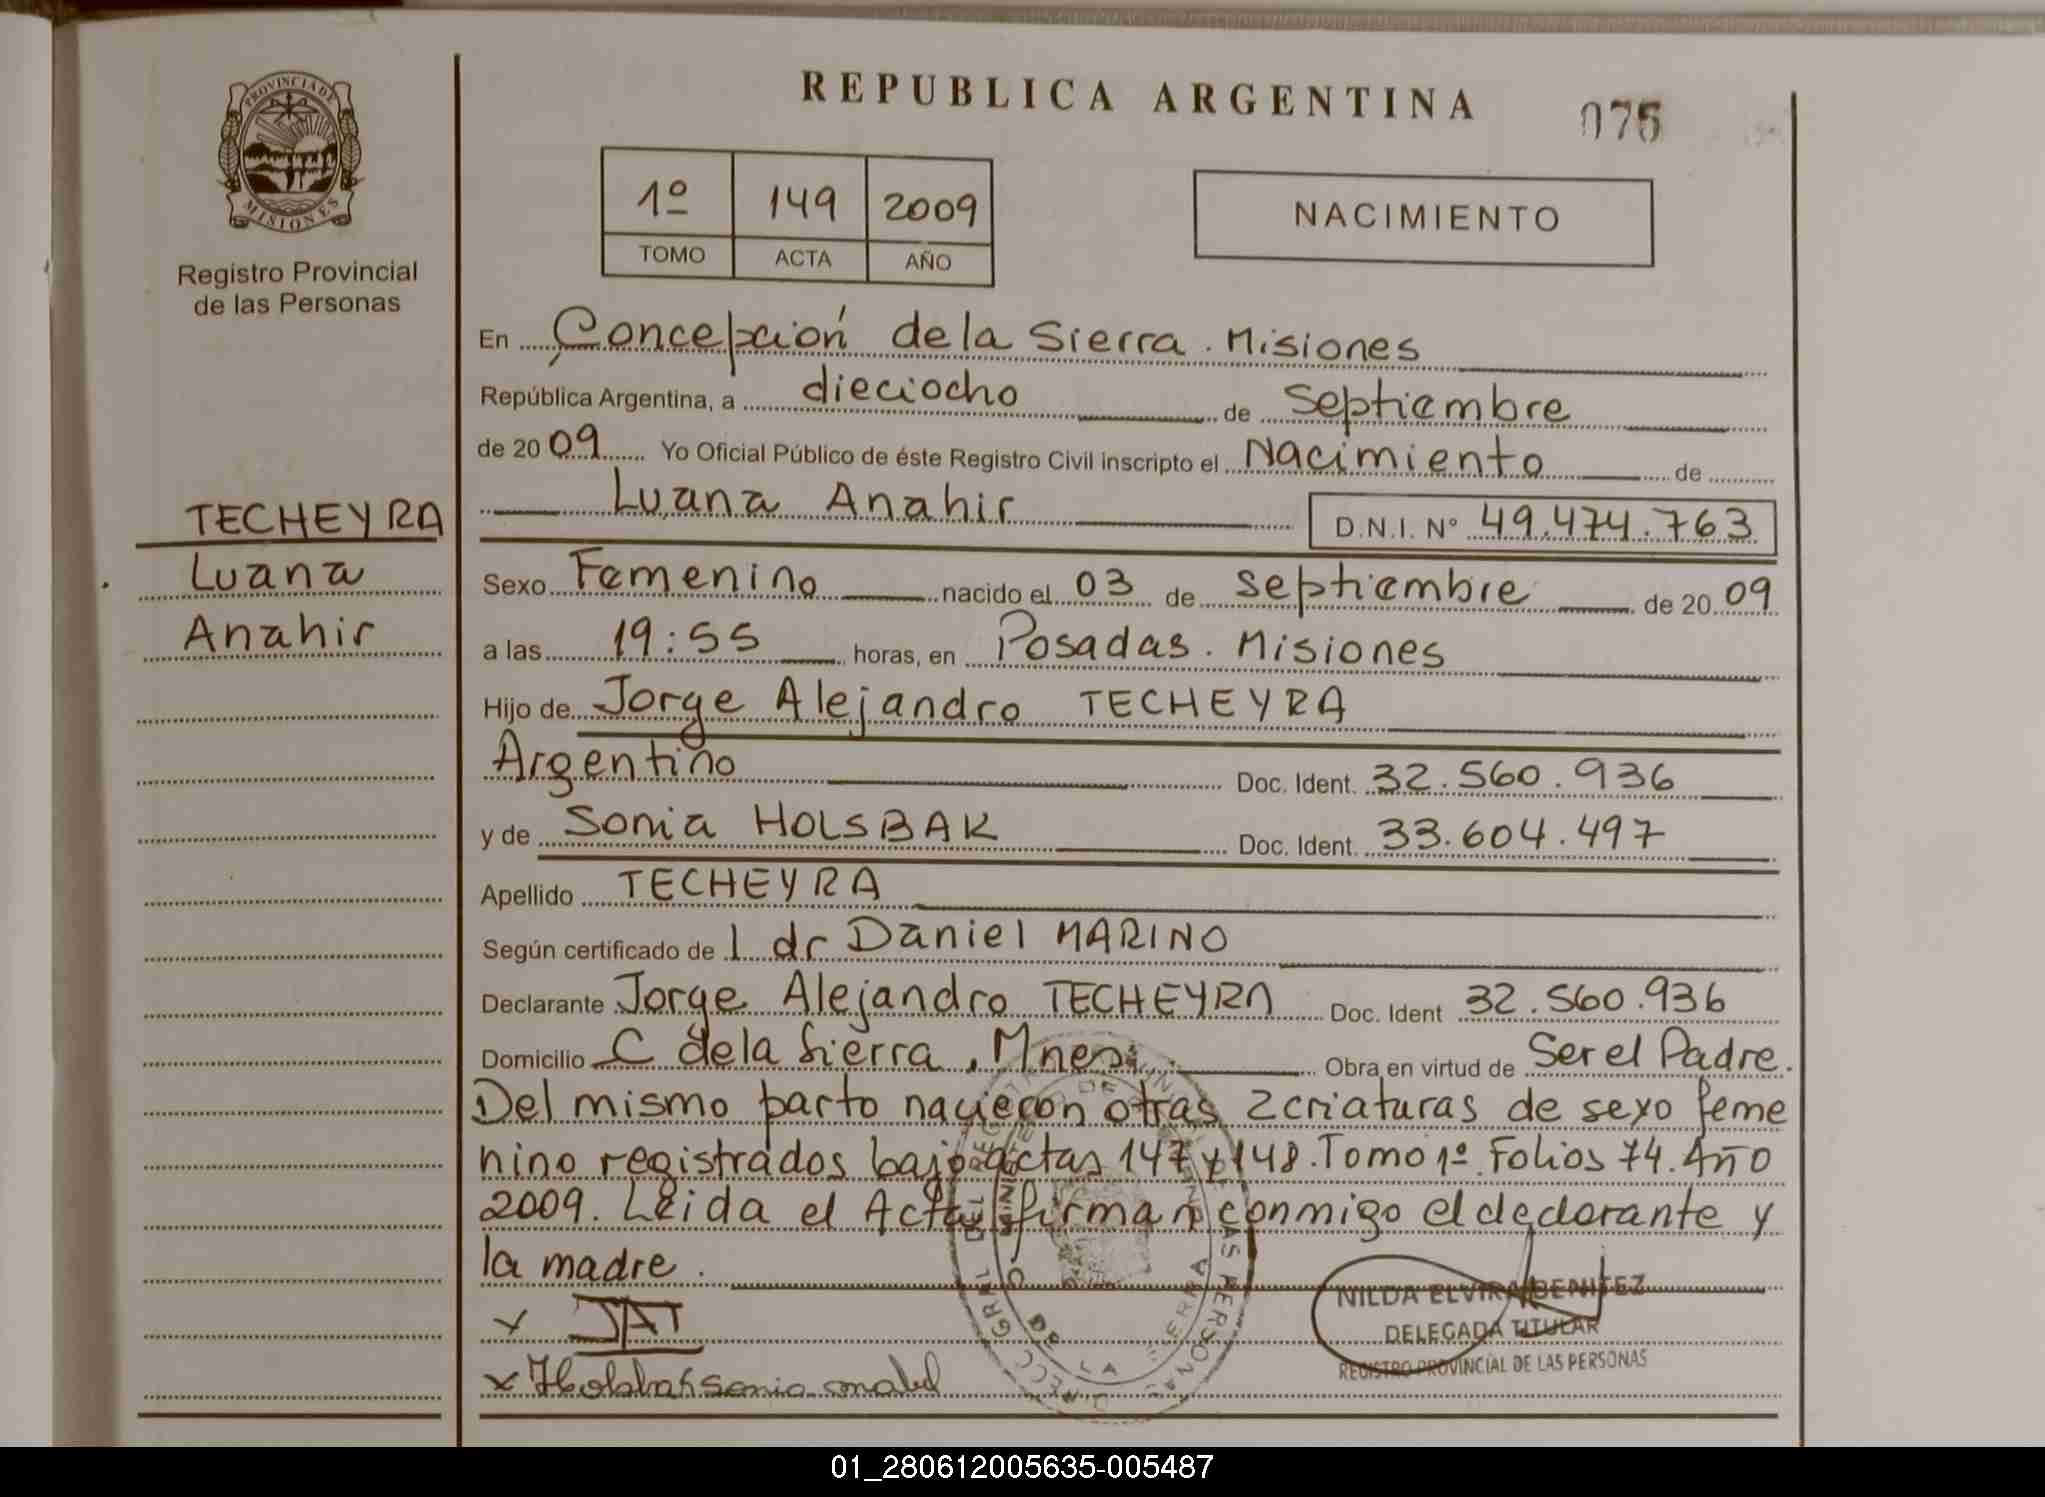 REPUBLICA ARGENTINA
PROVINCIA DE
MISIONES
Registro Provincial
de las Personas
1º 149 2009
TOMO ACTA AÑO
NACIMIENTO
En Concepción de la Sierra. Misiones
República Argentina, a dieciocho de septiembre
de 2009 Yo Oficial Público de éste Registro Civil inscripto el Nacimiento de
Luana Anahir D.N.I. Nº 49.474.763
TECHEYRA
Luana
Anahir
Sexo Femenino nacido el 03 de septiembre de 2009
a las 19:55 horas, en Posadas. Misiones
Hijo de Jorge Alejandro TECHEYRA
Argentino Doc. Ident. 32.560.936
y de Sonia HOLSBAK Doc. Ident. 33.604.497
Apellido TECHEYRA
Según certificado de l dr Daniel MARINO
Declarante Jorge Alejandro TECHEYRA Doc. Ident 32.560.936
Domicilio C dela Sierra, Mnes. Obra en virtud de Ser el Padre.
Del mismo parto nacieron otras 2 criaturas de sexo feme
nino registrados bajo actas 147 y 148. Tomo 1º. Folios 74. Año
2009. Leida el Acta firman conmigo el declarante y
la madre.
x JAT
x
NILDA ELVIRA BENITEZ
DELEGADA TITULAR
REGISTRO PROVINCIAL DE LAS PERSONAS
01_280612005635-005487